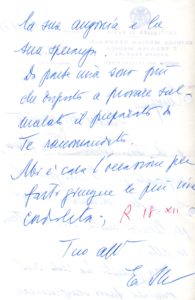 la sua angoscia e la
sua speranza.
Da parte mia sono più
che disposto a provare sul
malato il preparato da
Te raccomandato.
Mi è cara l'occasione per
farti giungere le più vive
cordialità,
R 18-XII
Tuo aff